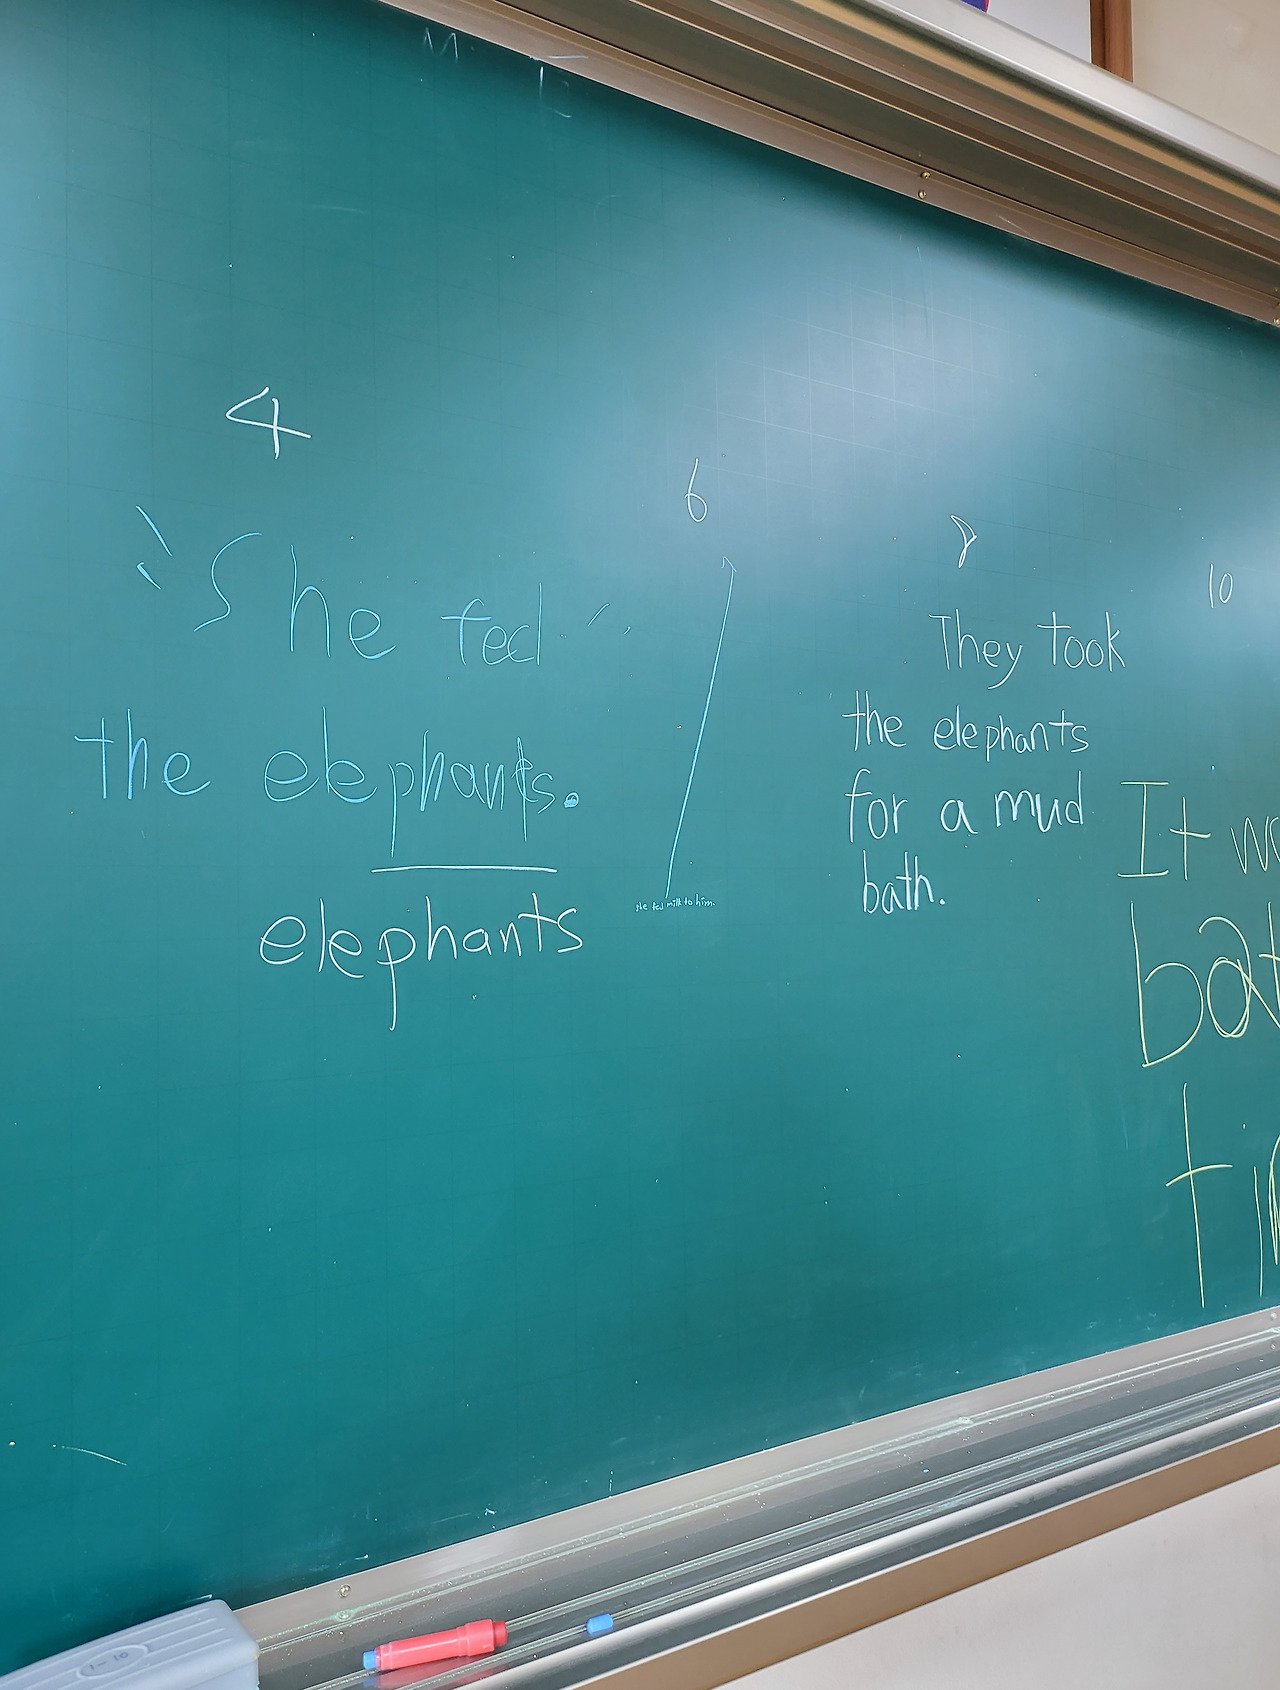 4
"She fed"
the elephants.
elephants
6
she fed milk to him.
8
They took
the elephants
for a mud
bath.
10
It
1-10